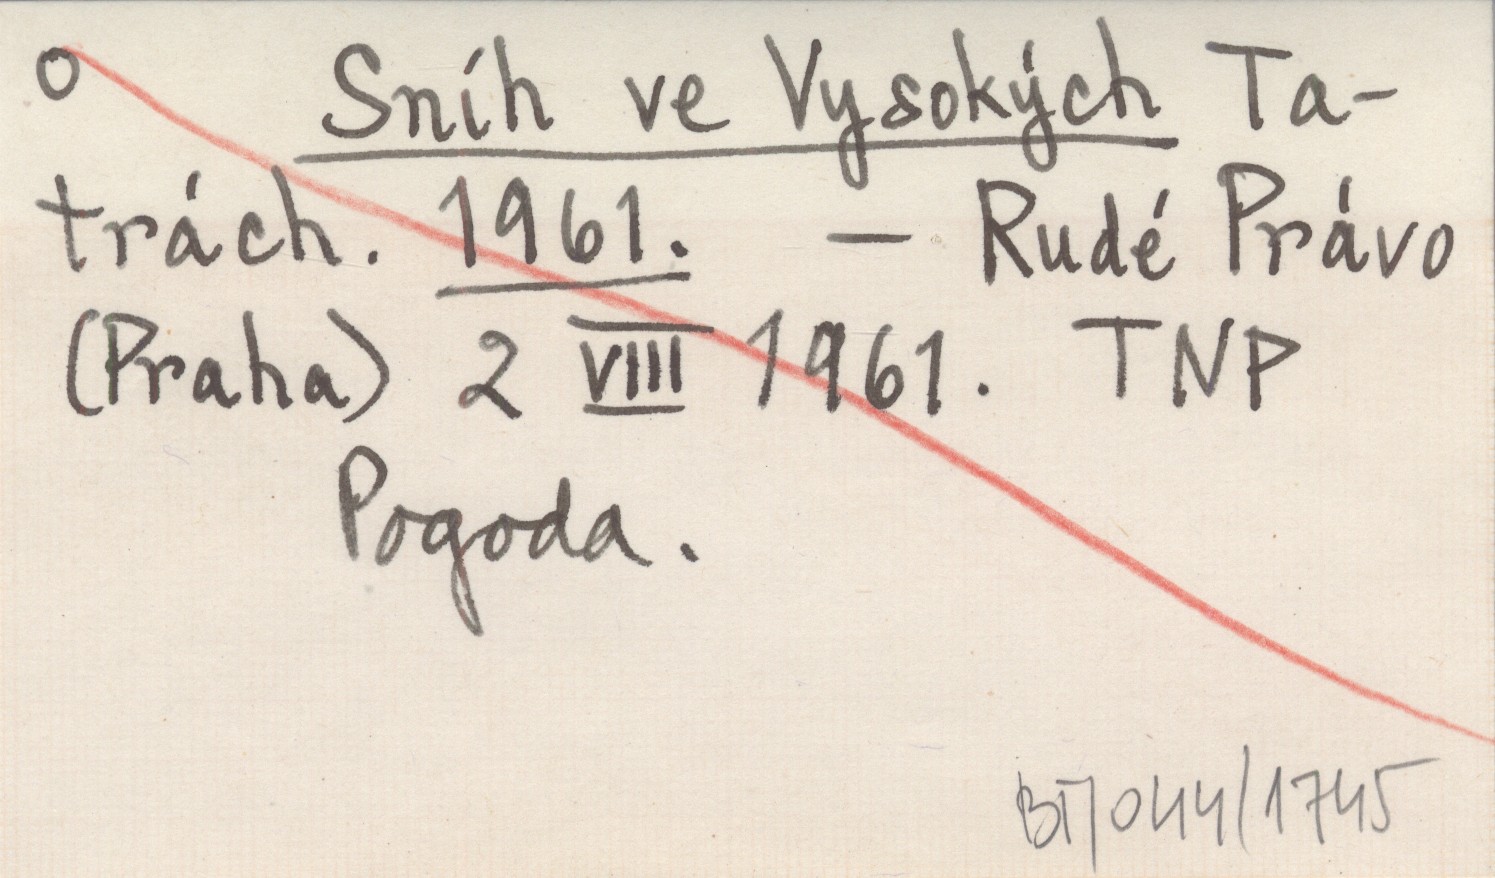 O Sníh ve Vysokých Ta-
trách. 1961. — Rudé Právo
(Praha) 2 VIII 1961. TNP
Pogoda.
BT/044/1745